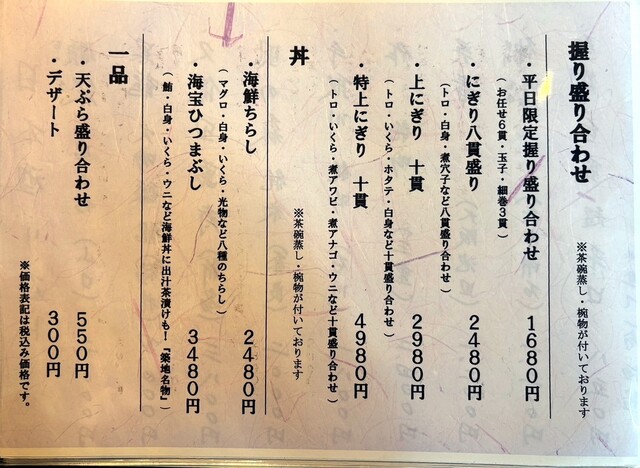 握り盛り合わせ
※茶碗蒸し・椀物が付いております
・平日限定握り盛り合わせ 1680円
（お任せ6貫・玉子・細巻3貫）
・にぎり八貫盛り 2480円
（トロ・白身・煮穴子など八貫盛り合わせ）
・上にぎり 十貫 2980円
（トロ・いくら・ホタテ・白身など十貫盛り合わせ）
・特上にぎり 十貫 4980円
（トロ・いくら・煮アワビ・煮アナゴ・ウニなど十貫盛り合わせ）
丼
※茶碗蒸し・椀物が付いております
・海鮮ちらし 2480円
（マグロ・白身・いくら・光物など八種のちらし）
・海宝ひつまぶし 3480円
（鮪・白身・いくら・ウニなど海鮮丼に出汁茶漬けも！『築地名物』）
一品
・天ぷら盛り合わせ 550円
・デザート 300円
※価格表記は税込み価格です。